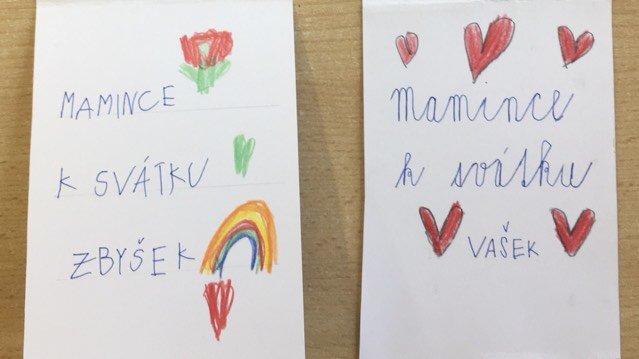 MAMINCE
K SVÁTKU
ZBYŠEK
Mamince
k svátku
VAŠEK